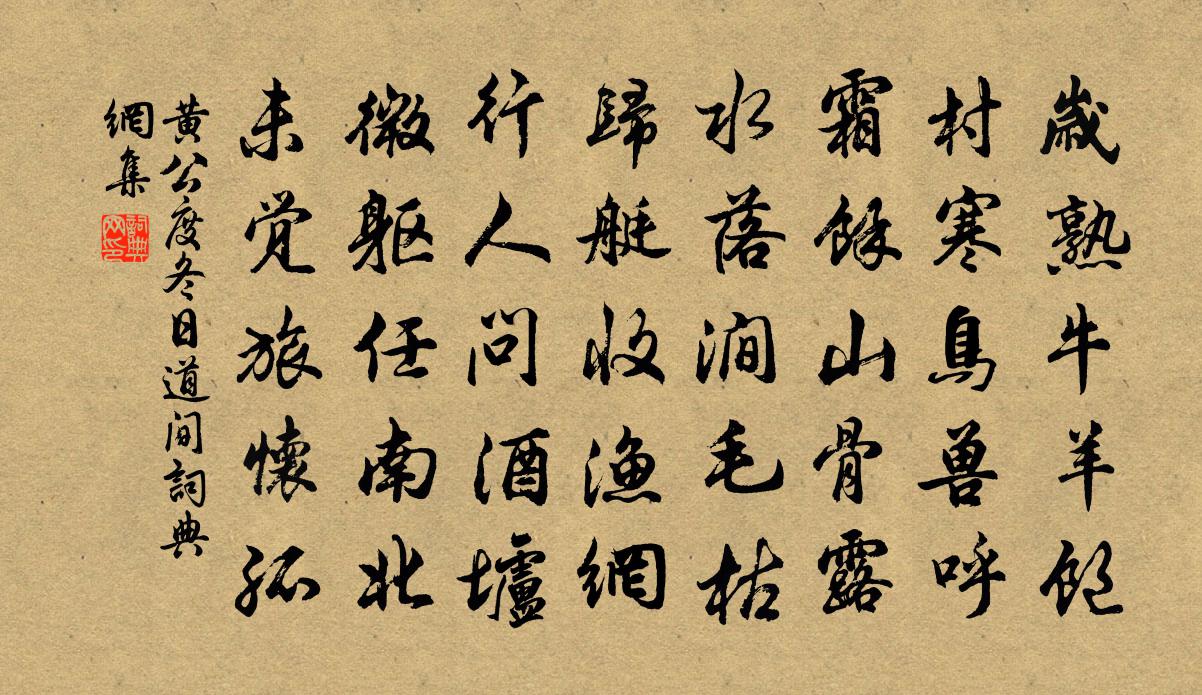 歲熟牛羊飽
村寒鳥獸呼
霜餘山骨露
水落澗毛枯
歸艇收漁網
行人問酒壚
微軀任南北
未覺旅懷孤
黃公度冬日道間詞典
網集
詞典
网印